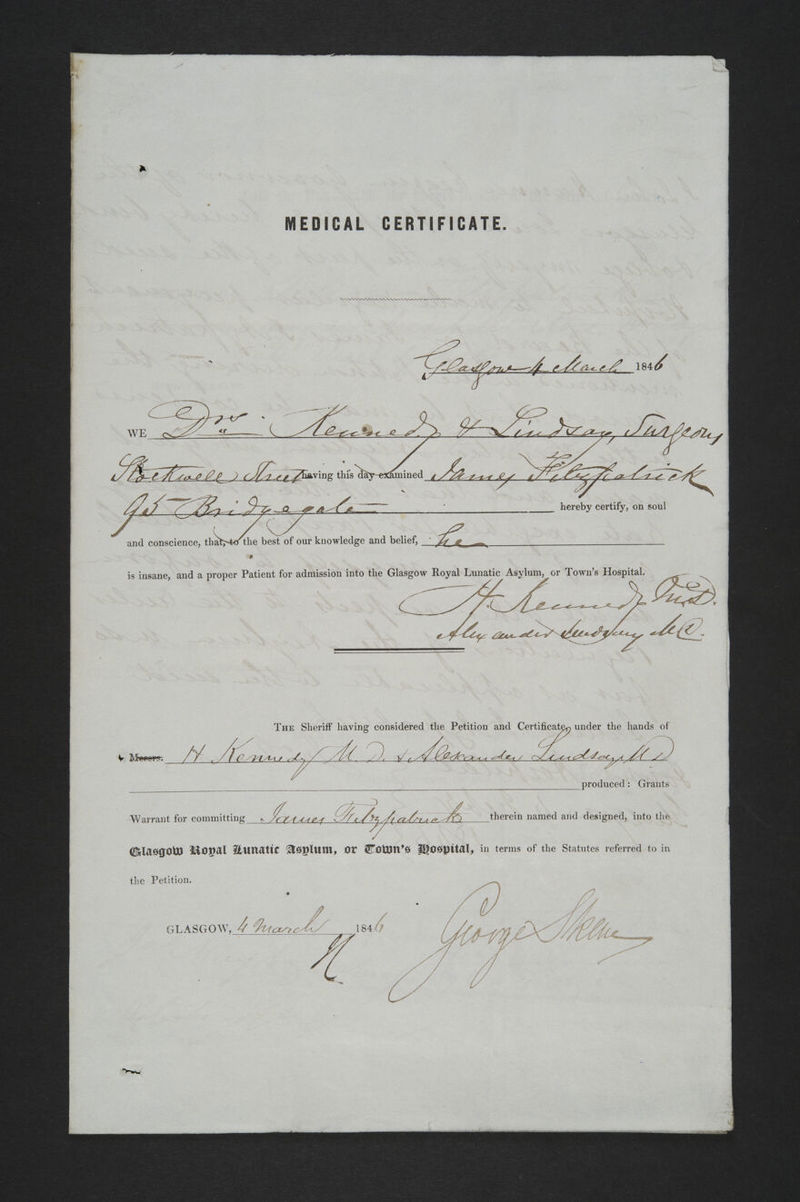 MEDICAL CERTIFICATE.
Glasgow 4 March 1846
WE Drs. Kennedy & Lindsay, Surgeons
Stockwell Street having this day examined James Fitzpatrick
95 Bridgegate hereby certify, on soul
and conscience, that, to the best of our knowledge and belief, he
is insane, and a proper Patient for admission into the Glasgow Royal Lunatic Asylum, or Town's Hospital.
H. Kennedy M.D.
Alexander Lindsay M.D.
THE Sheriff having considered the Petition and Certificate, under the hands of
Messrs. H Kennedy M.D. & Alexander Lindsay M D
produced: Grants
Warrant for committing James Fitzpatrick therein named and designed, into the
Glasgow Royal Lunatic Asylum, or Town's Hospital, in terms of the Statutes referred to in
the Petition.
GLASGOW, 4 March 1846
George Skene